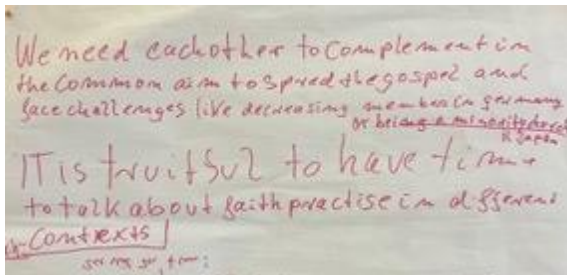 We need eachother to complement in
the common aim to spred the gospel and
face challenges like decreasing member in germany
or being a minority church
Japan
IT is fruitful to have time
to talk about faith practise in different
Contexts